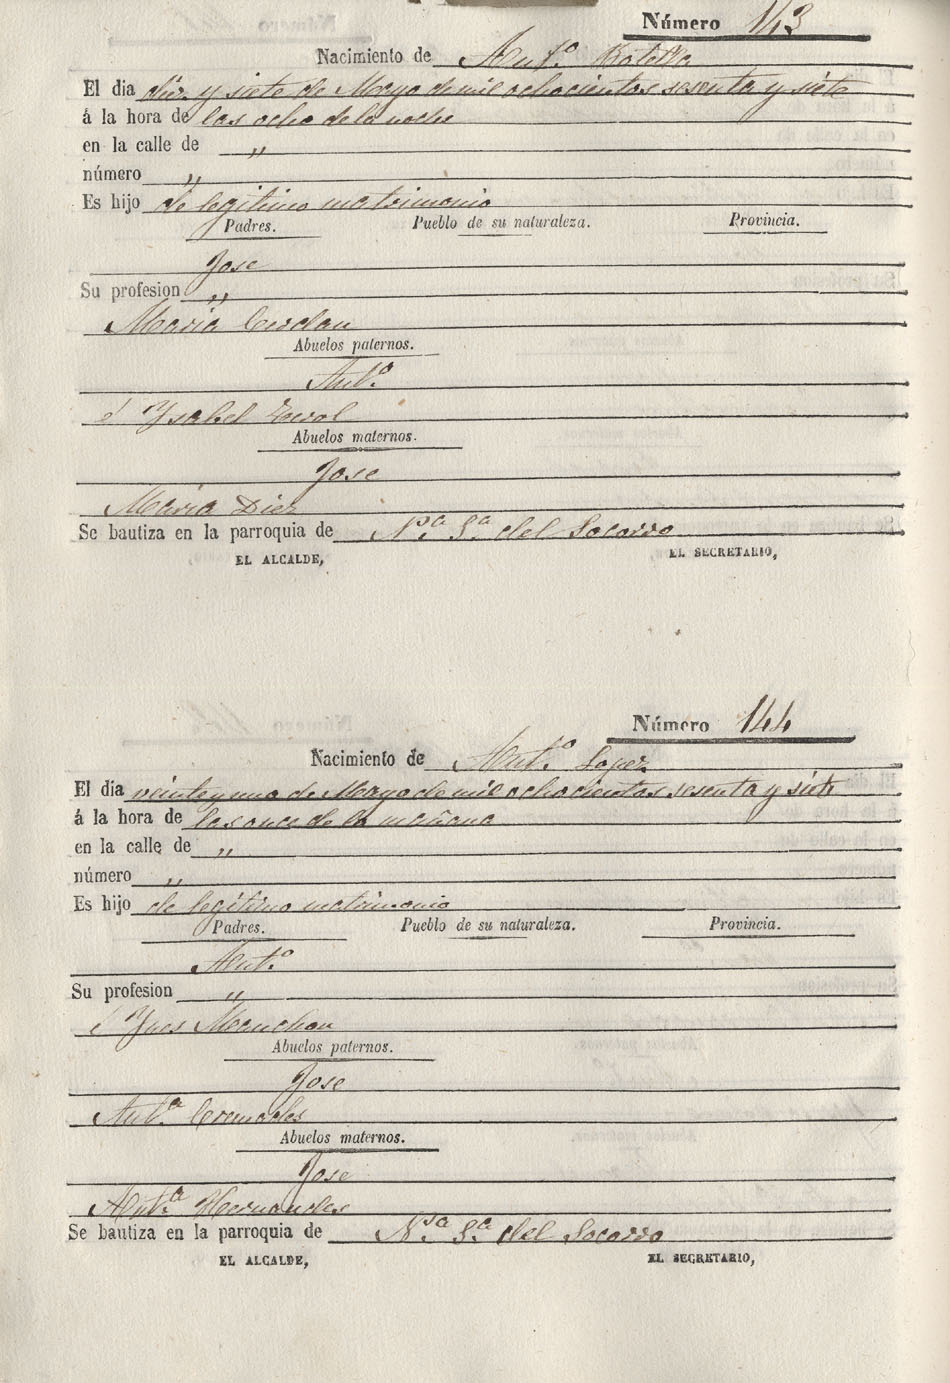 Número 143
Nacimiento de Ant.º Botella
El dia diez y siete de Mayo de mil ochocientos sesenta y siete
á la hora de las ocho de la noche
en la calle de "
número "
Es hijo de legitimo matrimonio
Padres. Pueblo de su naturaleza. Provincia.
Jose
Su profesion "
Maria Cerdan
Abuelos paternos.
Ant.º
é Ysabel
Abuelos maternos.
Jose
Maria Diez
Se bautiza en la parroquia de N.ª S.ª del Socorro
EL ALCALDE, EL SECRETARIO,
Número 144
Nacimiento de Ant.º Lopez
El día veinte y uno de Mayo de mil ochocientos sesenta y siete
á la hora de las once de la mañana
en la calle de "
número "
Es hijo de legitimo matrimonio
Padres. Pueblo de su naturaleza. Provincia.
Ant.º
Su profesion "
é Ynes Manchon
Abuelos paternos.
Jose
Ant.ª Cremades
Abuelos maternos.
Jose
Ant.ª Hernandez
Se bautiza en la parroquia de N.sª S.ª del Socorro
EL ALCALDE, EL SECRETARIO,